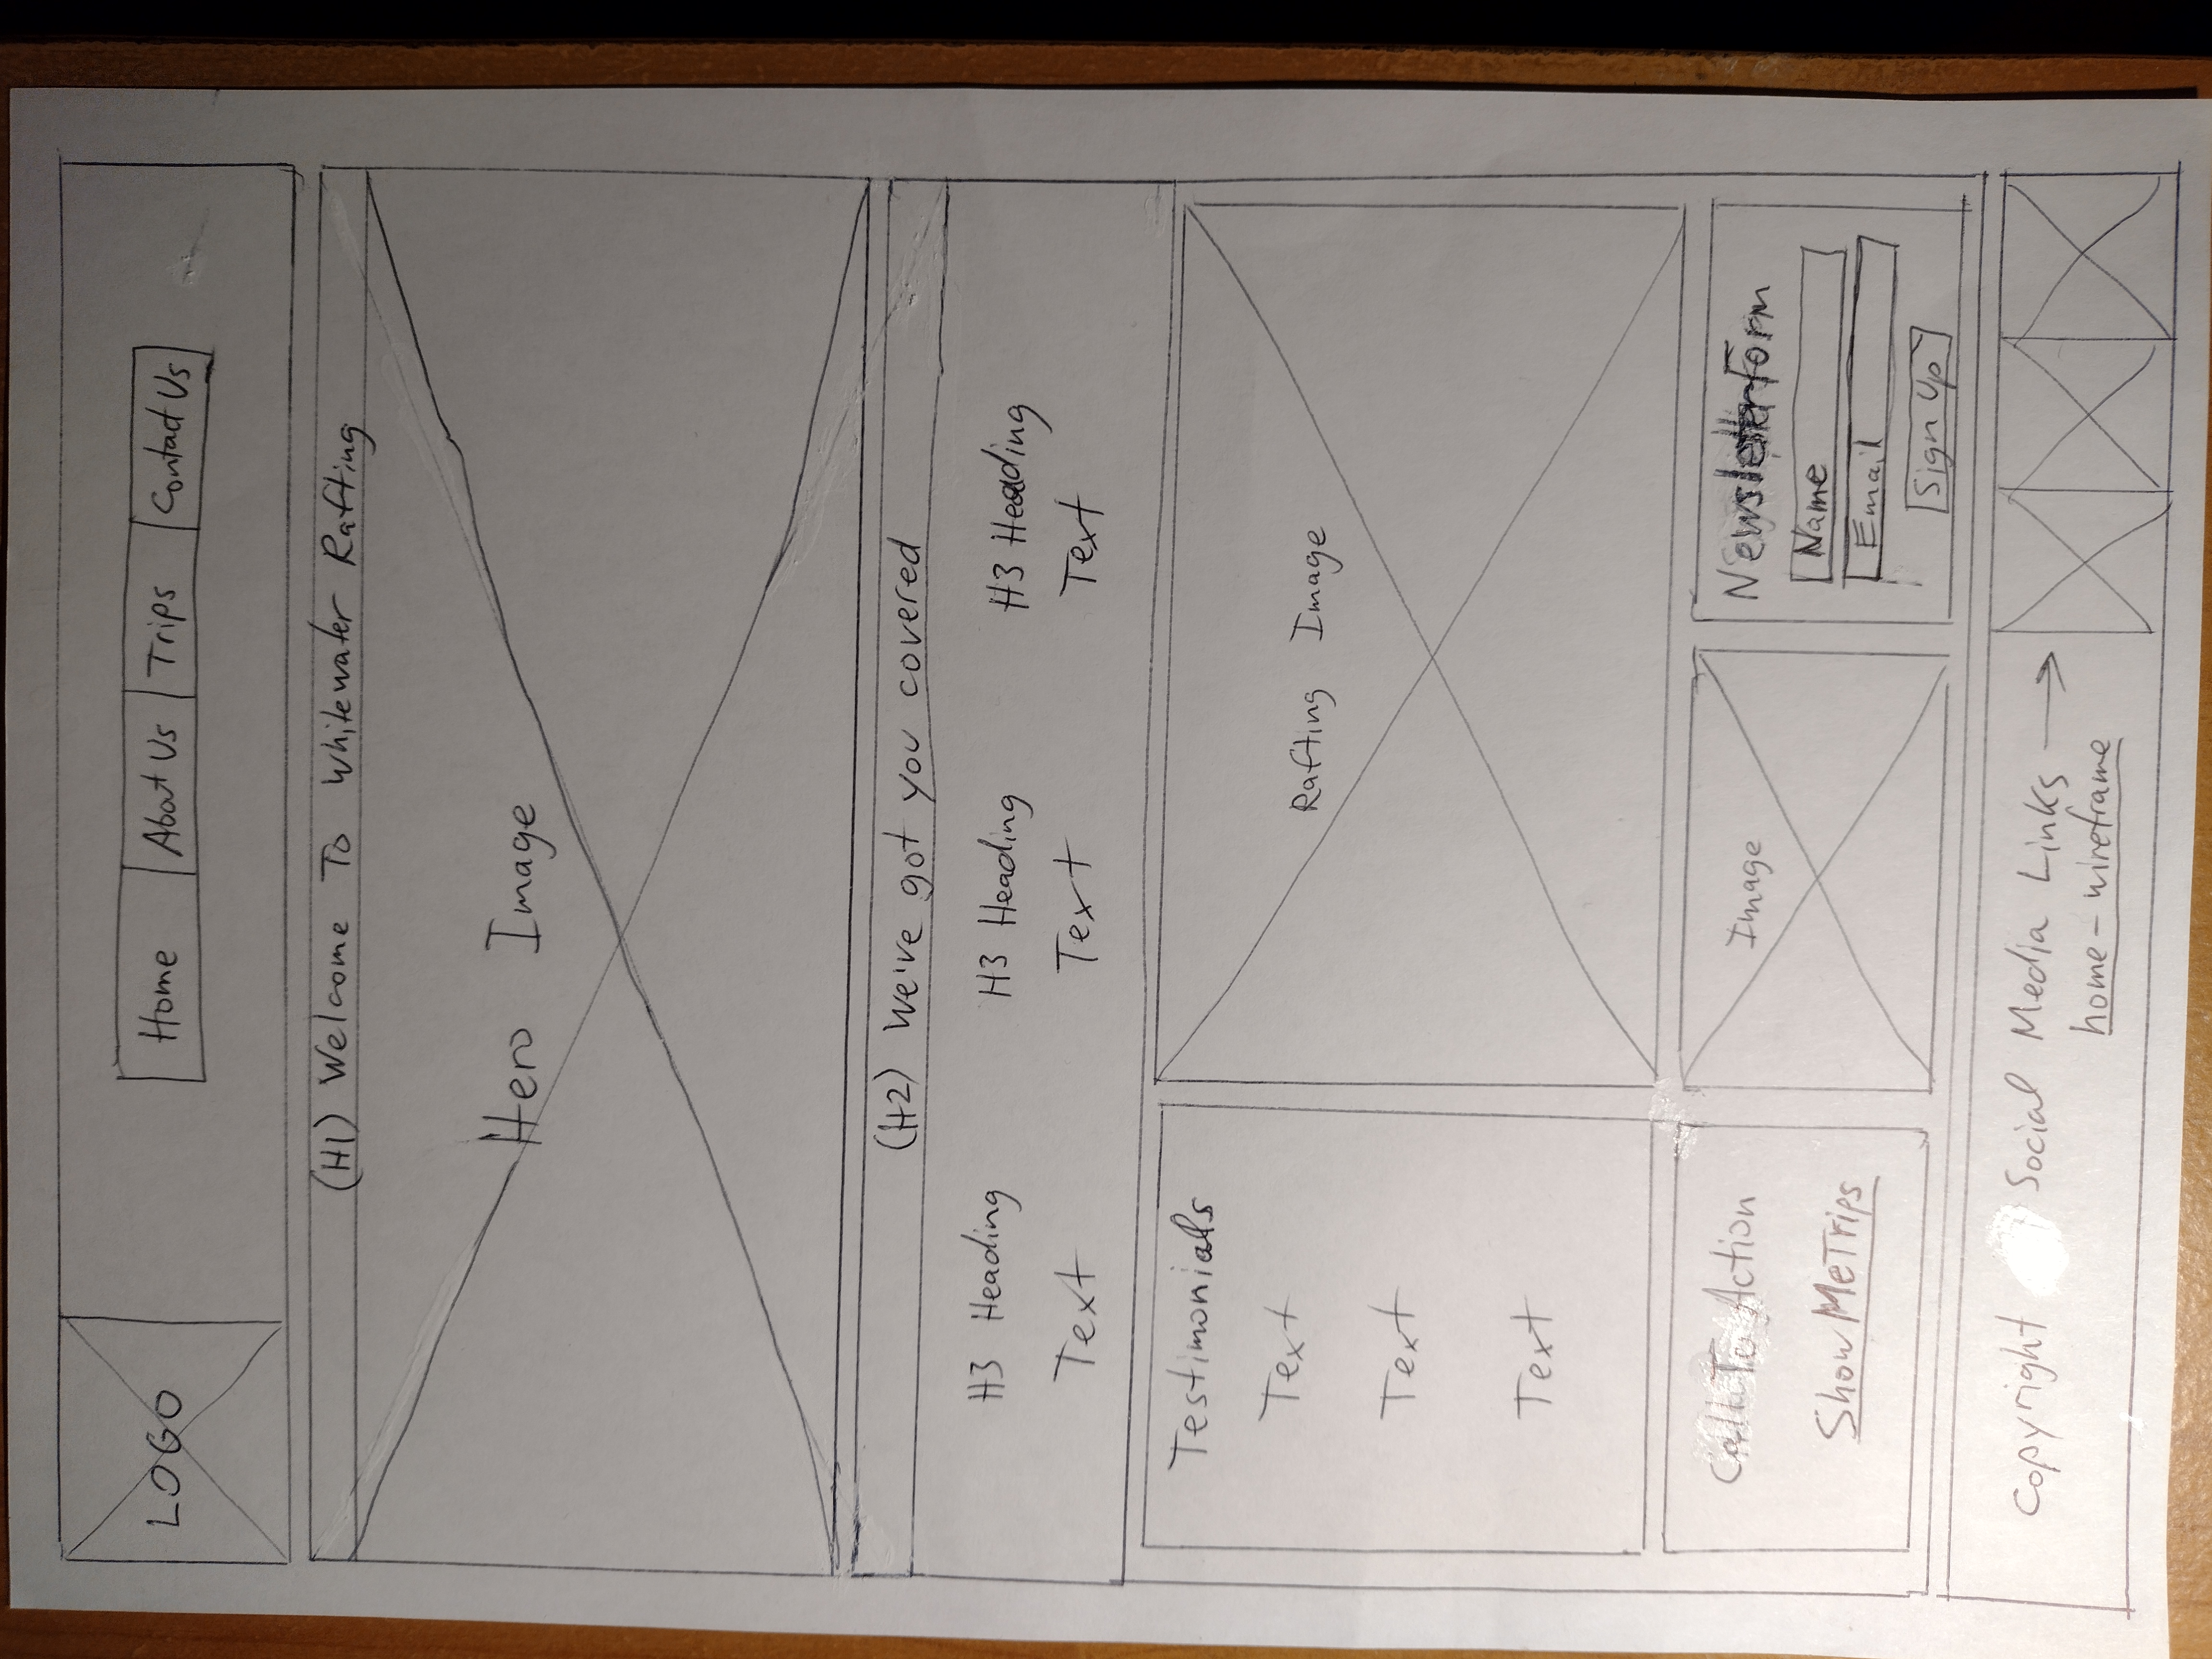 LOGO
Home About Us Trips Contact Us
(H1) Welcome To Whitewater Rafting
Hero Image
(H2) We've got you covered
H3 Heading H3 Heading H3 Heading
Text Text Text
Testimonials
Text
Text
Text
Rafting Image
Call To Action
Show Me Trips
Image
Newsletter Form
Name
Email
Sign Up
Copyright Social Media Links
home-wireframe